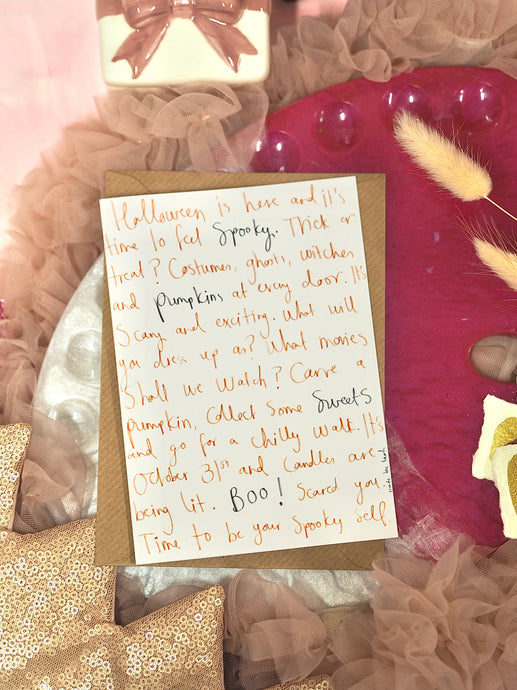 Halloween is here and it's
time to feel Spooky. Trick or
treat? Costumes, ghosts, witches
and pumpkins at every door. It's
Scary and exciting. What will
you dress up as? What movies
Shall we watch? Carve a
pumpkin, collect some Sweets
and go for a chilly walk. It's
October 31st and candles are
being lit. BOO! Scared you.
Time to be your Spooky Self.